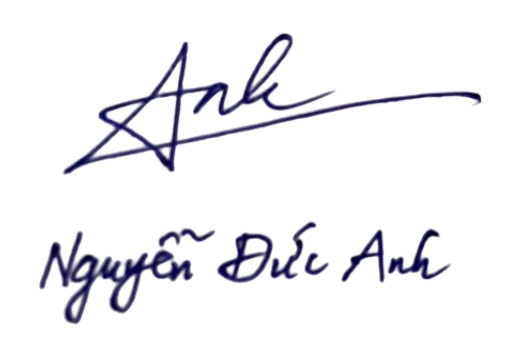 Anh
Nguyễn Đức Anh